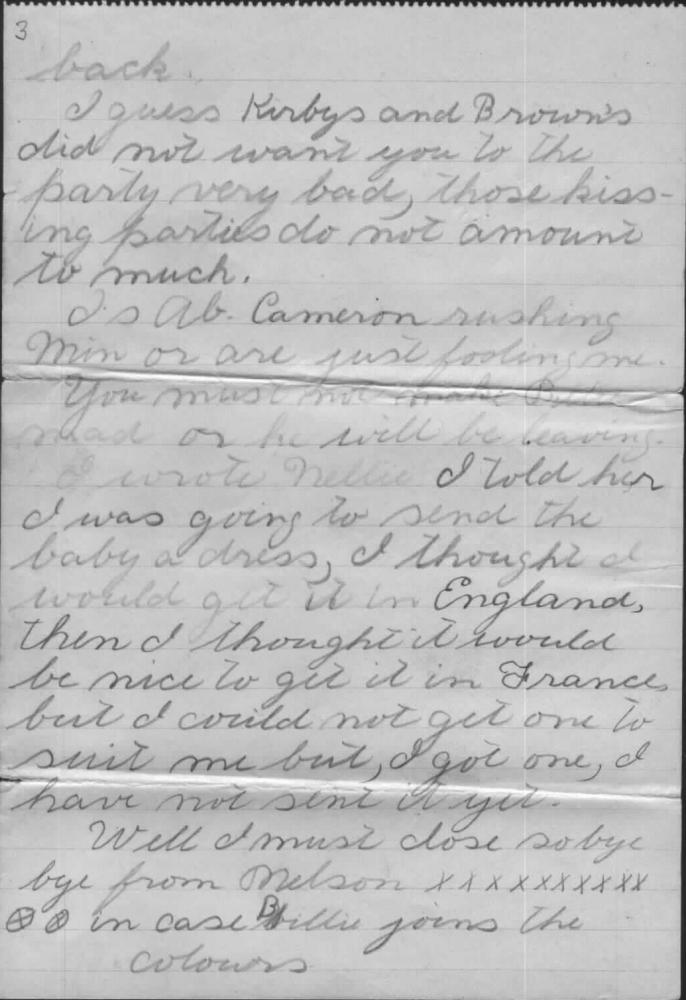 3
back.
I guess Kirbys and Brown's
did not want you to the
party very bad, those kiss-
ing parties do not amount
to much.
Is Ab. Cameron rushing
Min or are just fooling me.
You must not make Billie
mad or he will be leaving.
I wrote Nellie I told her
I was going to send the
baby a dress, I thought I
would get it in England,
then I thought it would
be nice to get it in France,
but I could not get one to
suit me but, I got one, I
have not sent it yet.
Well I must close so bye
bye from Nelson x x x x x x x x x x
⊗ ⊗ in case Billie joins the
colours